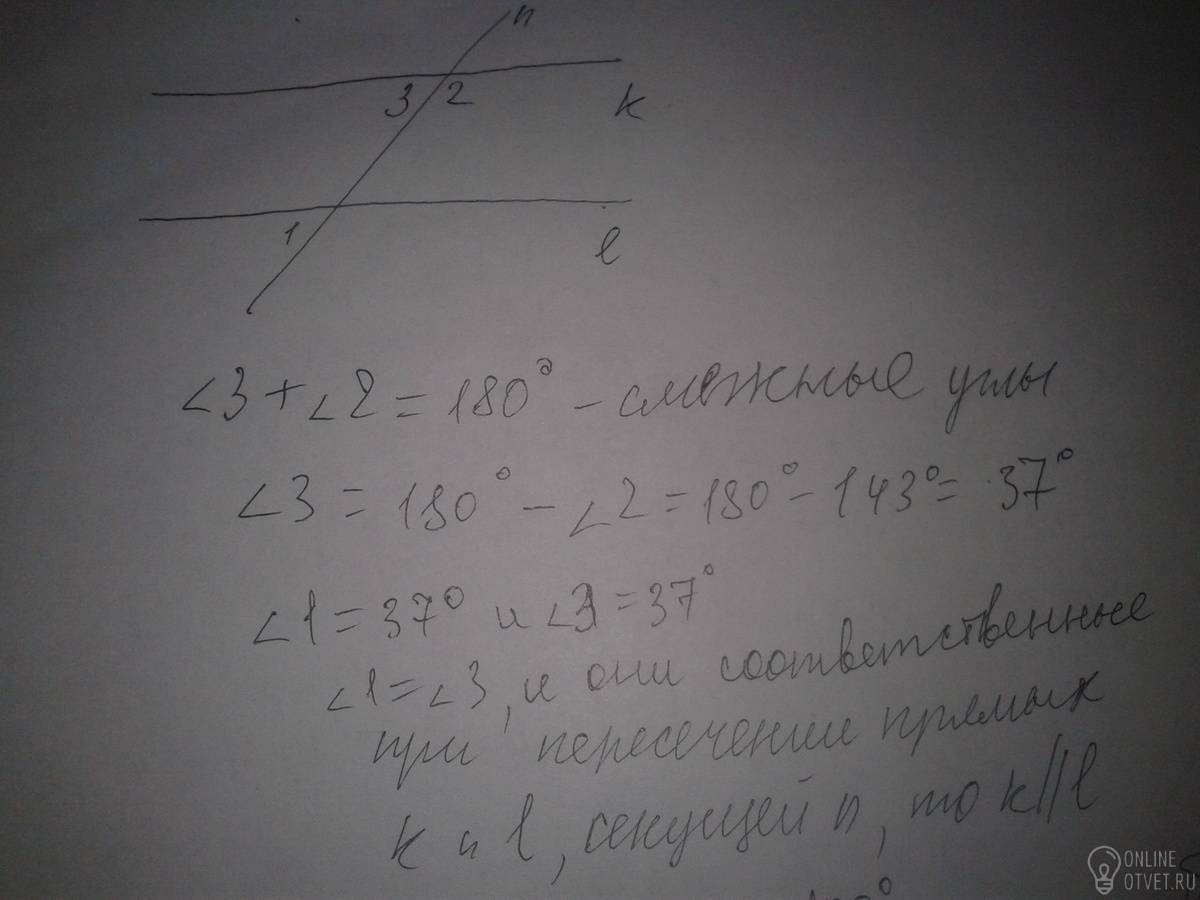 n
3 2
k
1
l
∠3+∠2=180° – смежные углы
∠3=180°–∠2=180°–143°=37°
∠1=37° и ∠3=37°
∠1=∠3, и они соответственные
при пересечении прямых
k и l, секущей n, то k||l
ONLINE
OTVET.RU